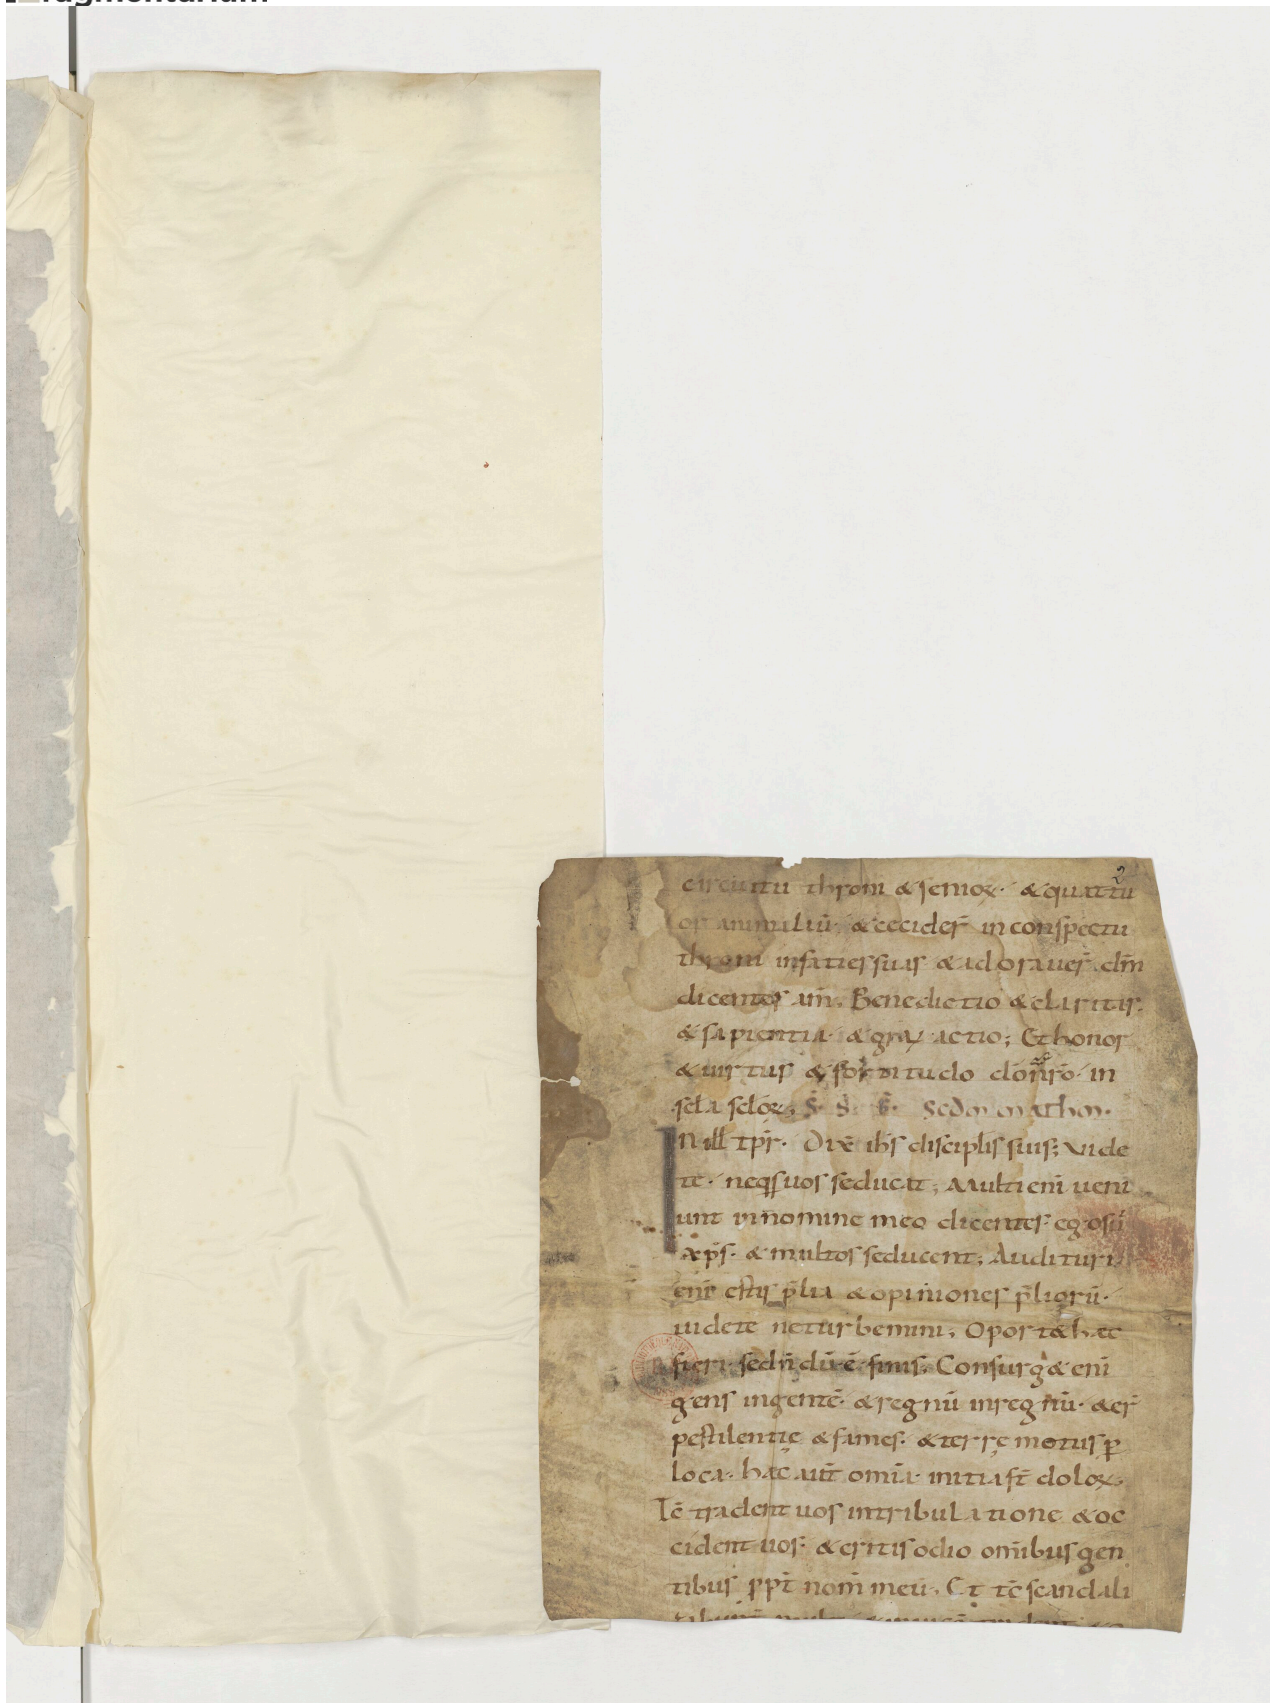 circuitu throni & senioꝝ· & quattu
or animaliū· & cecider̄ in conspectu
throni infatiessuas & adorauer̄ dm̄
dicentes am̄. Benedictio & claritas·
& sapientia· & gr̄aꝝ actio; Et honor
& uirtus & fortitudo dō nr̄ō in
sc̄la sc̄loꝝ. S̄. S̄. Sc̄dm matheu.
In ill̄ tp̄r· Dix̄ ih̄s disciplis suis; Vide
te· neq̄s uos seducat; Multi enī ueni
unt in nomine meo dicentes· ego sū
xp̄s· & multos seducent; Audituri
enī estis p̄lia & opiniones p̄liorū·
uidete ne turbemini; Oport& hec
fieri· sed n̄dū ē finis; Consurg& enī
gens in gentē· & regnū in regnū· & er̄
pestilentię & fames· & terrę motus ꝑ
loca· hæc aūt omīa initia st̄ doloꝝ·
Tc̄ tradent uos in tribulatione & oc
cident uos· & eritis odio omībus gen
tibus ꝓpt̄ nom̄ meū. Et tc̄ scandali